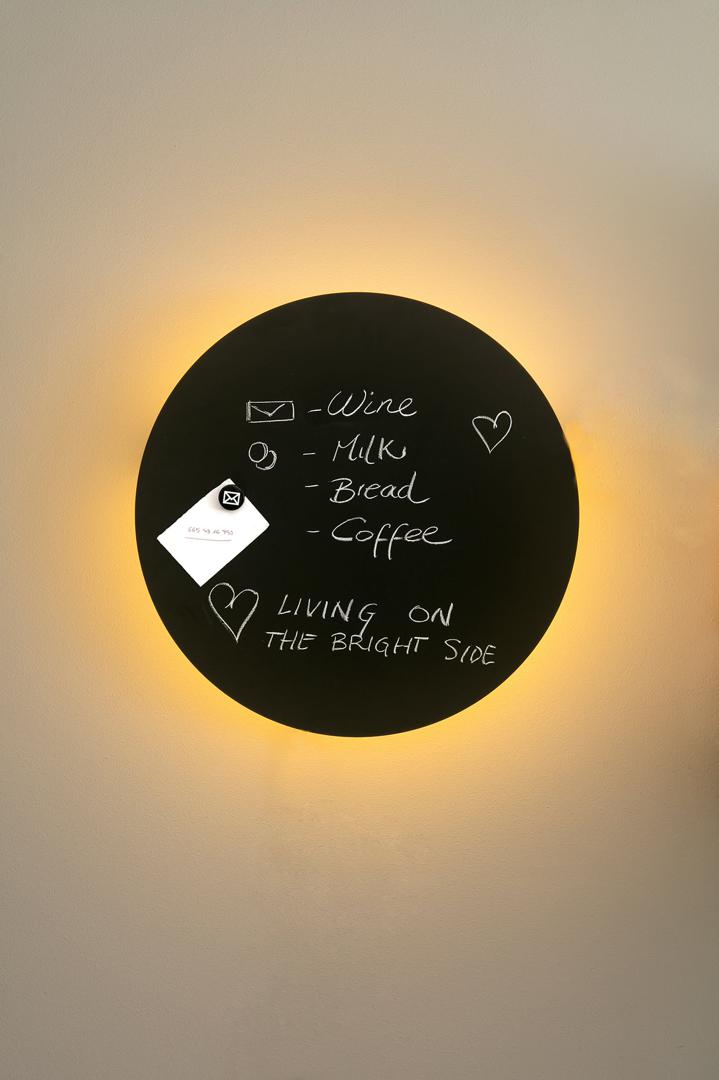 - Wine
- Milk
- Bread
- Coffee
LIVING ON
THE BRIGHT SIDE